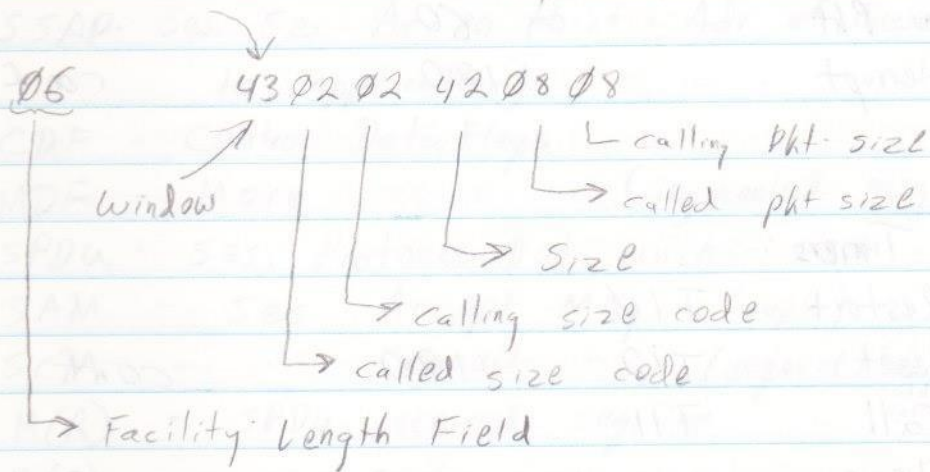 Ø6 43 Ø2 Ø2 42 Ø8 Ø8
calling pkt. size
Window
called pkt size
Size
calling size code
called size code
Facility Length Field